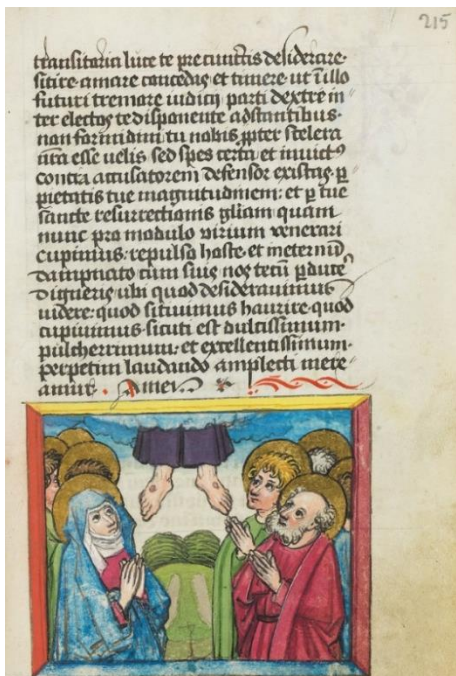 215
transitaria luce te pre cunctis desiderare·
sitire·amare concedas et timere·ut ĩ illo
futuri tremore iudicij parti dextre in
ter electos te disponente adstantibus·
non formidini tu nobis ꝓpter scelera
nr̃a esse velis sed spes certa·et invictꝰ
contra accusatorem defensor existas·ꝑ
pietatis tue magnitudinem·et ꝑ tue
sancte resurrectionis gl̃iam quam
nunc pro modulo virium venerari
cupimus·repulso hoste·et ineternũ
dampnato cum suis nos tecũ ꝑducẽ
digneris ubi quod desideravimus
videre·quod sitivimus haurire·quod
cupivimus·sicuti est dulcissimum·
pulcherrimum·et excellentissimum·
perpetim laudando amplecti mere
amur· Amen